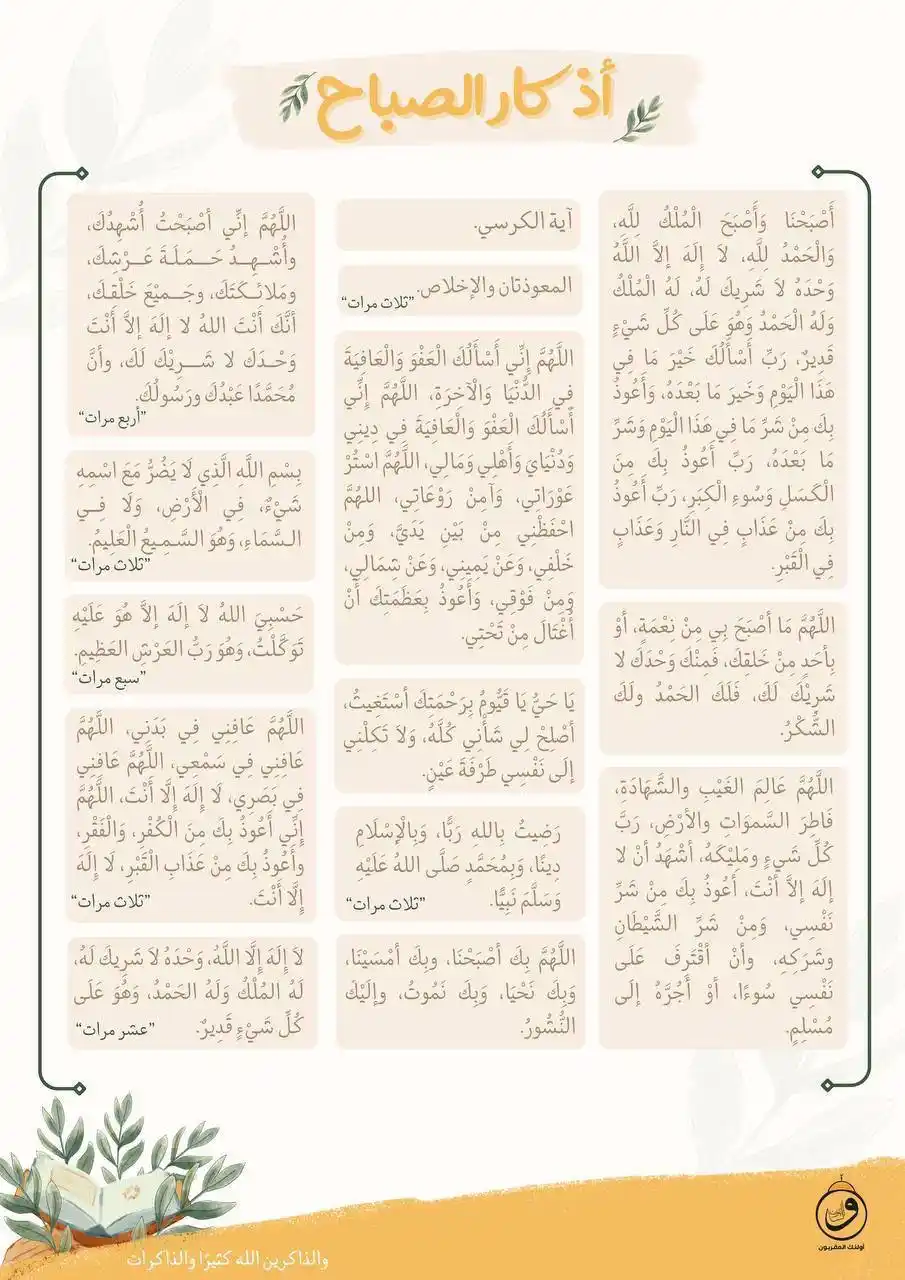 أذكار الصباح
أَصْبَحْنَا وَأَصْبَحَ الْمُلْكُ لِلَّهِ،
وَالْحَمْدُ لِلَّهِ، لاَ إِلَهَ إلاَّ اللَّهُ
وَحْدَهُ لاَ شَرِيكَ لَهُ، لَهُ الْمُلْكُ
وَلَهُ الْحَمْدُ وَهُوَ عَلَى كُلِّ شَيْءٍ
قَدِيرٌ، رَبِّ أَسْأَلُكَ خَيْرَ مَا فِي
هَذَا الْيَوْمِ وَخَيرَ مَا بَعْدَهُ، وَأَعُوذُ
بِكَ مِنْ شَرِّ مَا فِي هَذَا الْيَوْمِ وَشَرِّ
مَا بَعْدَهُ، رَبِّ أَعُوذُ بِكَ مِنَ
الْكَسَلِ وَسُوءِ الْكِبَرِ، رَبِّ أَعُوذُ
بِكَ مِنْ عَذَابٍ فِي النَّارِ وَعَذَابٍ
فِي الْقَبْرِ.
اللَّهُمَّ مَا أَصْبَحَ بِي مِنْ نِعْمَةٍ، أَوْ
بِأَحَدٍ مِنْ خَلقِكَ، فَمِنْكَ وَحْدَكَ لا
شَرِيْكَ لَكَ، فَلَكَ الحَمْدُ ولَكَ
الشُّكْرُ.
اللَّهُمَّ عَالِمَ الغَيْبِ والشَّهَادَةِ،
فَاطِرَ السَّموَاتِ والأرْضِ، رَبَّ
كُلِّ شَيءٍ ومَلِيْكَهُ، أشْهَدُ أنْ لا
إلَهَ إلاَّ أنْتَ، أَعُوذُ بِكَ مِنْ شَرِّ
نَفْسِي، وَمِنْ شَرِّ الشَّيْطَانِ
وشَرَكِهِ، وأنْ أقْتَرِفَ عَلَى
نَفْسِي سُوءًا، أوْ أَجُرَّهُ إلَى
مُسْلِمٍ.
آية الكرسي.
المعوذتان والإخلاص. “ثلاث مرات”
اللَّهُمَّ إِنِّي أَسْأَلُكَ الْعَفْوَ وَالْعَافِيَةَ
فِي الدُّنْيَا وَالْآخِرَةِ، اللَّهُمَّ إِنِّي
أَسْأَلُكَ الْعَفْوَ وَالْعَافِيَةَ فِي دِينِي
وَدُنْيَايَ وَأَهْلِي وَمَالِي، اللَّهُمَّ اسْتُرْ
عَوْرَاتِي، وَآمِنْ رَوْعَاتِي، اللهُمَّ
احْفَظْنِي مِنْ بَيْنِ يَدَيَّ، وَمِنْ
خَلْفِي، وَعَنْ يَمِينِي، وَعَنْ شِمَالِي،
وَمِنْ فَوْقِي، وَأَعُوذُ بِعَظَمَتِكَ أَنْ
أُغْتَالَ مِنْ تَحْتِي.
يَا حَيُّ يَا قَيُّومُ بِرَحْمَتِكَ أَسْتَغِيثُ،
أَصْلِحْ لِي شَأْنِي كُلَّهُ، وَلاَ تَكِلْنِي
إلَى نَفْسِي طَرْفَةَ عَيْنٍ.
رَضِيتُ بِاللهِ رَبًّا، وَبِالْإِسْلَامِ
دِينًا، وَبِمُحَمَّدٍ صَلَّى اللهُ عَلَيْهِ
وَسَلَّمَ نَبِيًّا. “ثلاث مرات”
اللَّهُمَّ بِكَ أَصْبَحْنَا، وبِكَ أمْسَيْنَا،
وَبِكَ نَحْيَا، وَبِكَ نَمُوتُ، وإلَيْكَ
النُّشُورُ.
اللَّهُمَّ إنِّي أصْبَحْتُ أُشْهِدُكَ،
وأُشْهِدُ حَمَلَةَ عَرْشِكَ،
ومَلائِكَتَكَ، وجَمِيْعَ خَلْقِكَ،
أنَّكَ أنْتَ اللهُ لا إلَهَ إلاَّ أنْتَ
وَحْدَكَ لا شَرِيْكَ لَكَ، وأنَّ
مُحَمَّدًا عَبْدُكَ ورَسُولُكَ.
“أربع مرات”
بِسْمِ اللَّهِ الَّذِي لَا يَضُرُّ مَعَ اسْمِهِ
شَيْءٌ، فِي الْأَرْضِ، وَلَا فِي
السَّمَاءِ، وَهُوَ السَّمِيعُ الْعَلِيمُ.
“ثلاث مرات”
حَسْبِيَ اللهُ لاَ إلَهَ إلاَّ هُوَ عَلَيْهِ
تَوَكَّلْتُ، وَهُوَ رَبُّ العَرْشِ العَظِيمِ.
“سبع مرات”
اللَّهُمَّ عَافِنِي فِي بَدَنِي، اللهُمَّ
عَافِنِي فِي سَمْعِي، اللَّهُمَّ عَافِنِي
فِي بَصَرِي، لَا إِلَهَ إِلَّا أَنْتَ، اللَّهُمَّ
إِنِّي أَعُوذُ بِكَ مِنَ الْكُفْرِ، وَالْفَقْرِ،
وأَعُوذُ بِكَ مِنْ عَذَابِ الْقَبْرِ، لَا إِلَهَ
إِلَّا أَنْتَ. “ثلاث مرات”
لاَ إِلَهَ إِلَّا اللَّهُ، وَحْدَهُ لاَ شَرِيكَ لَهُ،
لَهُ المُلْكُ وَلَهُ الحَمْدُ، وَهُوَ عَلَى
كُلِّ شَيْءٍ قَدِيرٌ. “عشر مرات”
والذاكرين الله كثيرًا والذاكرات
أولئك المقربون